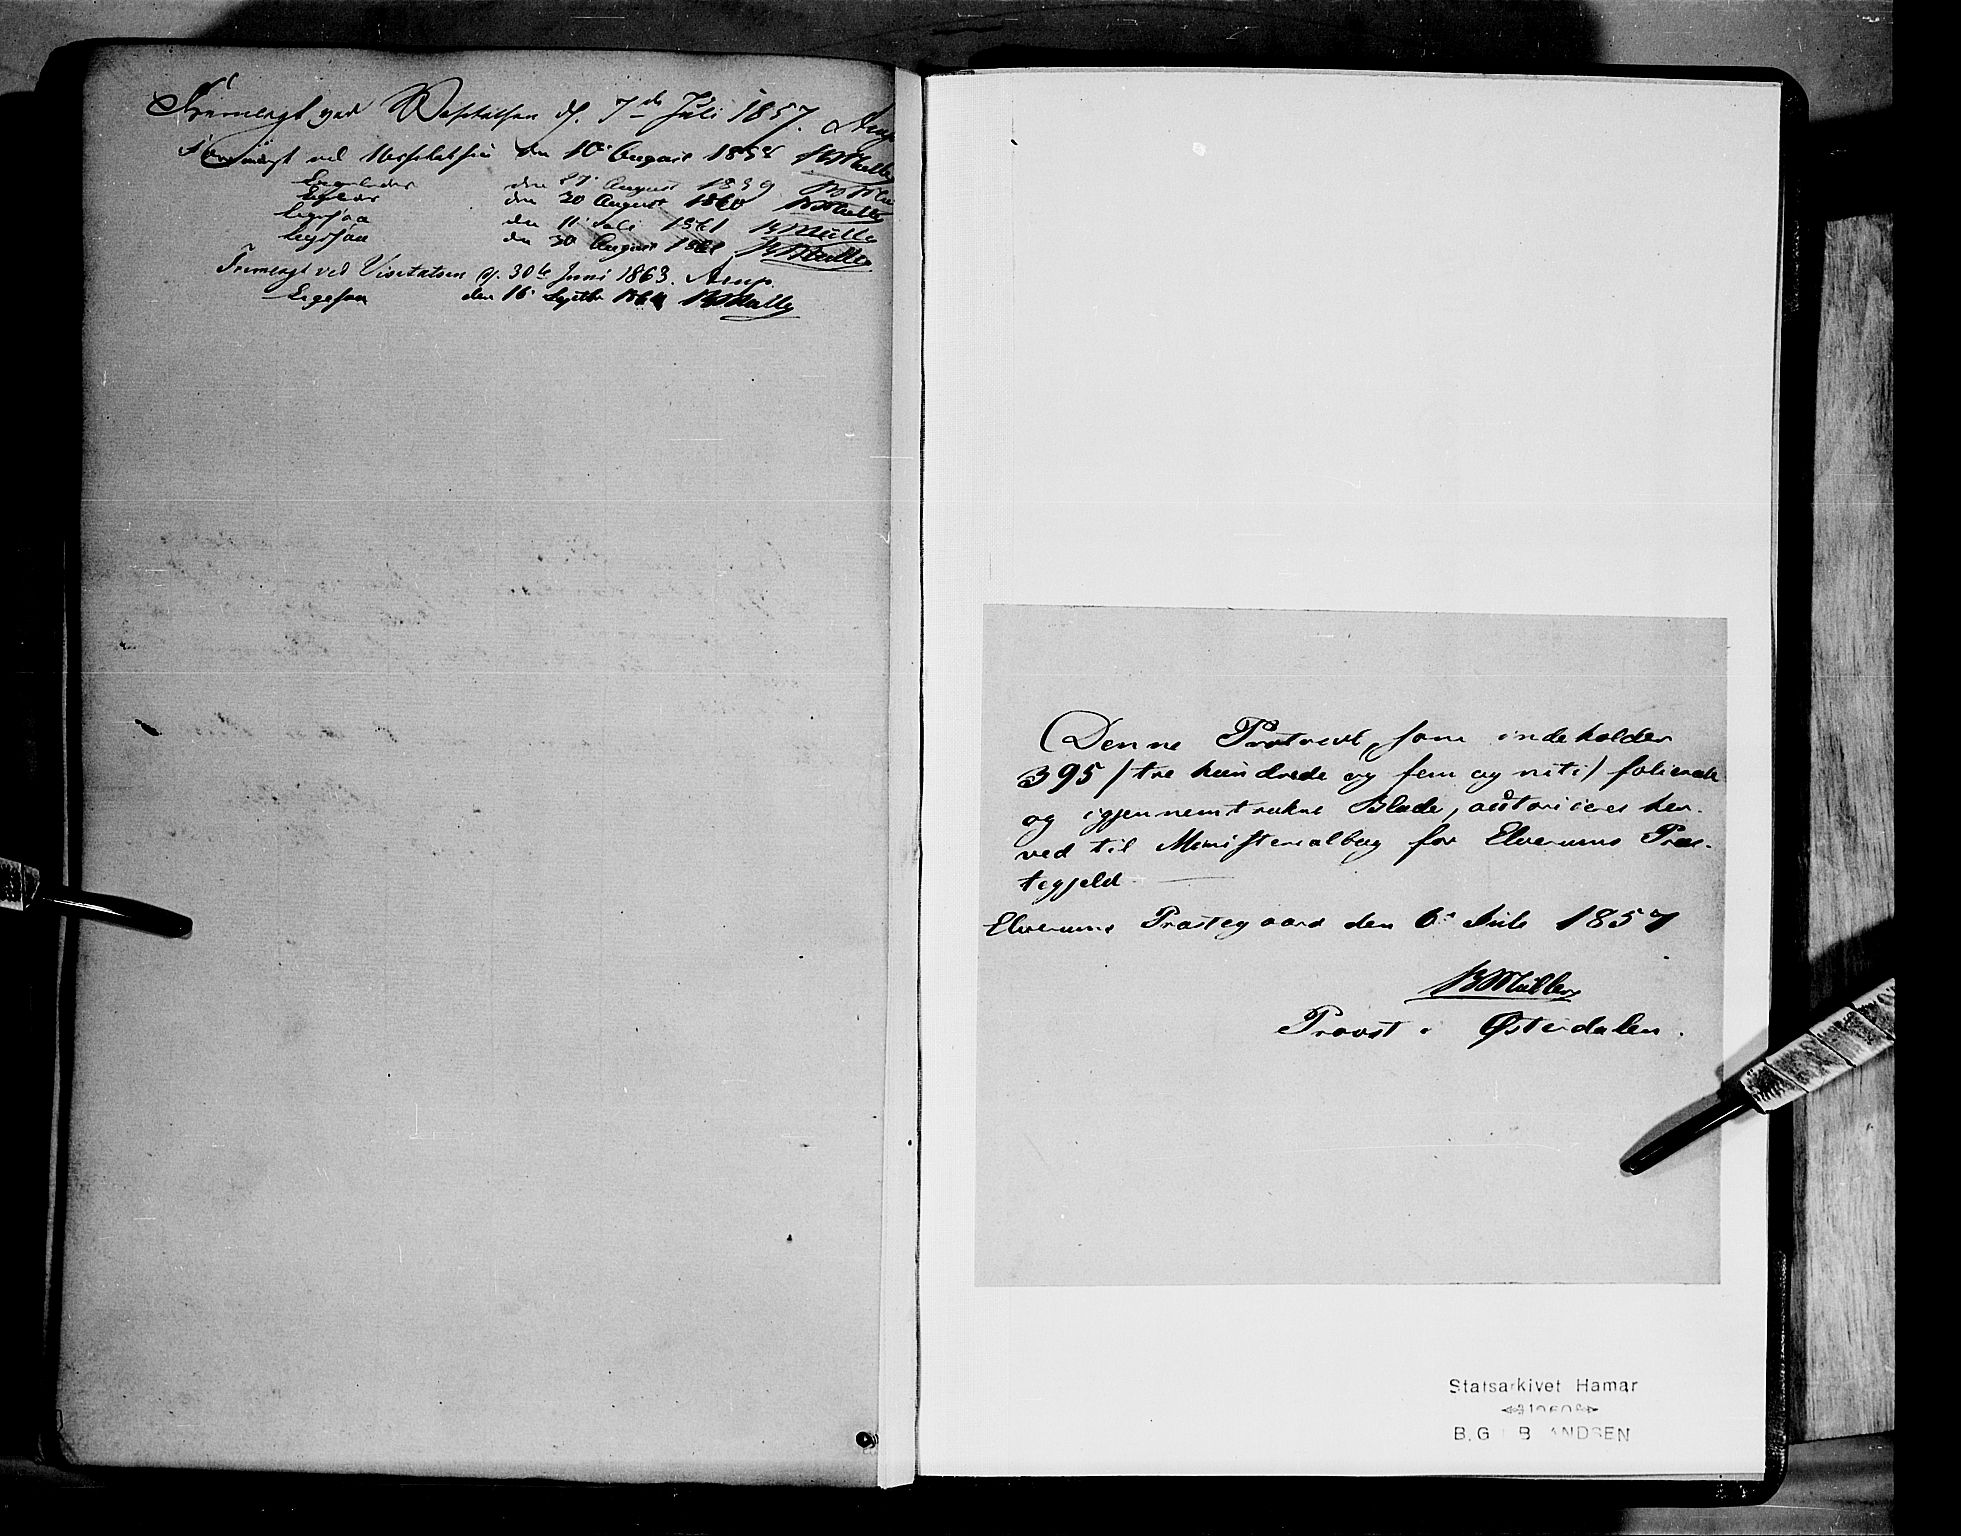 Fremlagt ved Visitatsen d. 7de Juli 1857. Arup
Fremlagt ved Visitatsen den 10. August 1858 BMüller
Ligeledes den 27. August 1859 BMü
Ligesaa den 20 August 1860 BMüller
ligesaa den 11. Juli 1861 BMüller
ligesaa den 30 August 1862 BMüller
Fremlagt ved Visitatsen d. 30te Juni 1863. Arup.
Ligesaa den 16. Septbr 1864 BMüller
Denne Protocol, som indeholder
395 / tre hundrede og fem og niti / folierede
og igjennemtrukne Blade, autoriseres her-
ved til Ministerialbog for Elverums Præ-
stegjeld
Elverums Præstegaard den 6. Juli 1857
BMüller
Provst i Østerdalen.
Statsarkivet Hamar
B.G ANDSEN